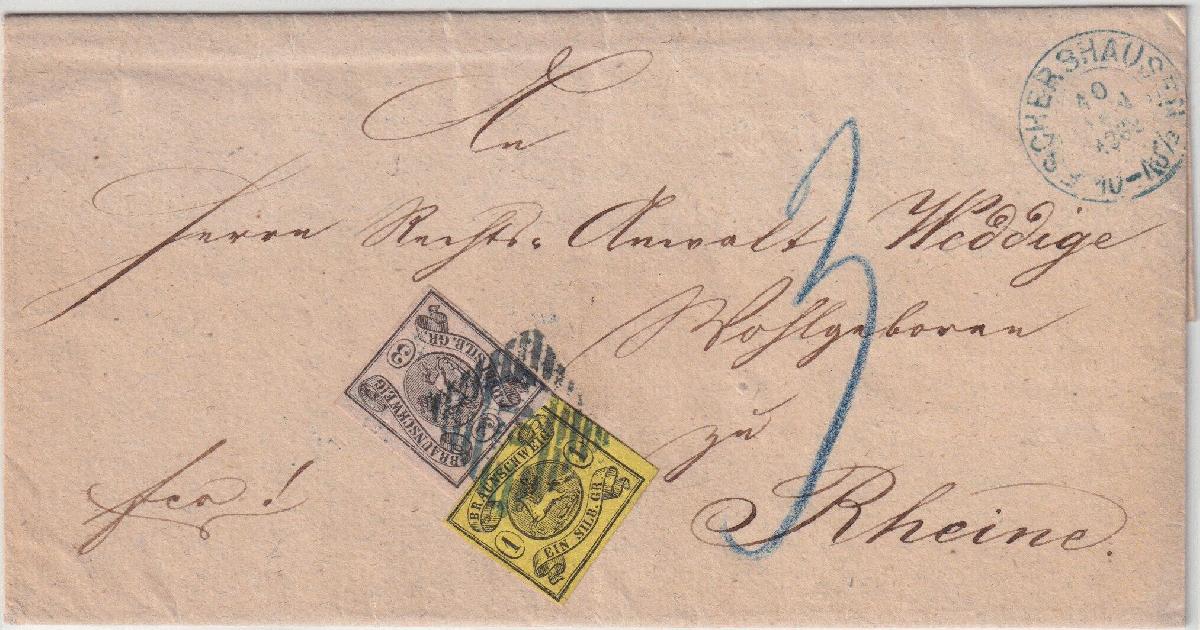 An
Herrn Rechts= Anwalt Weddige
Wohlgeboren
zu
Rheine.
fco !
3
ESCHERSHAUSEN
10-10½
BRAUNSCHWEIG
SILB. GR.
3
BRAUNSCHWEIG
EIN SILB. GR
1
1